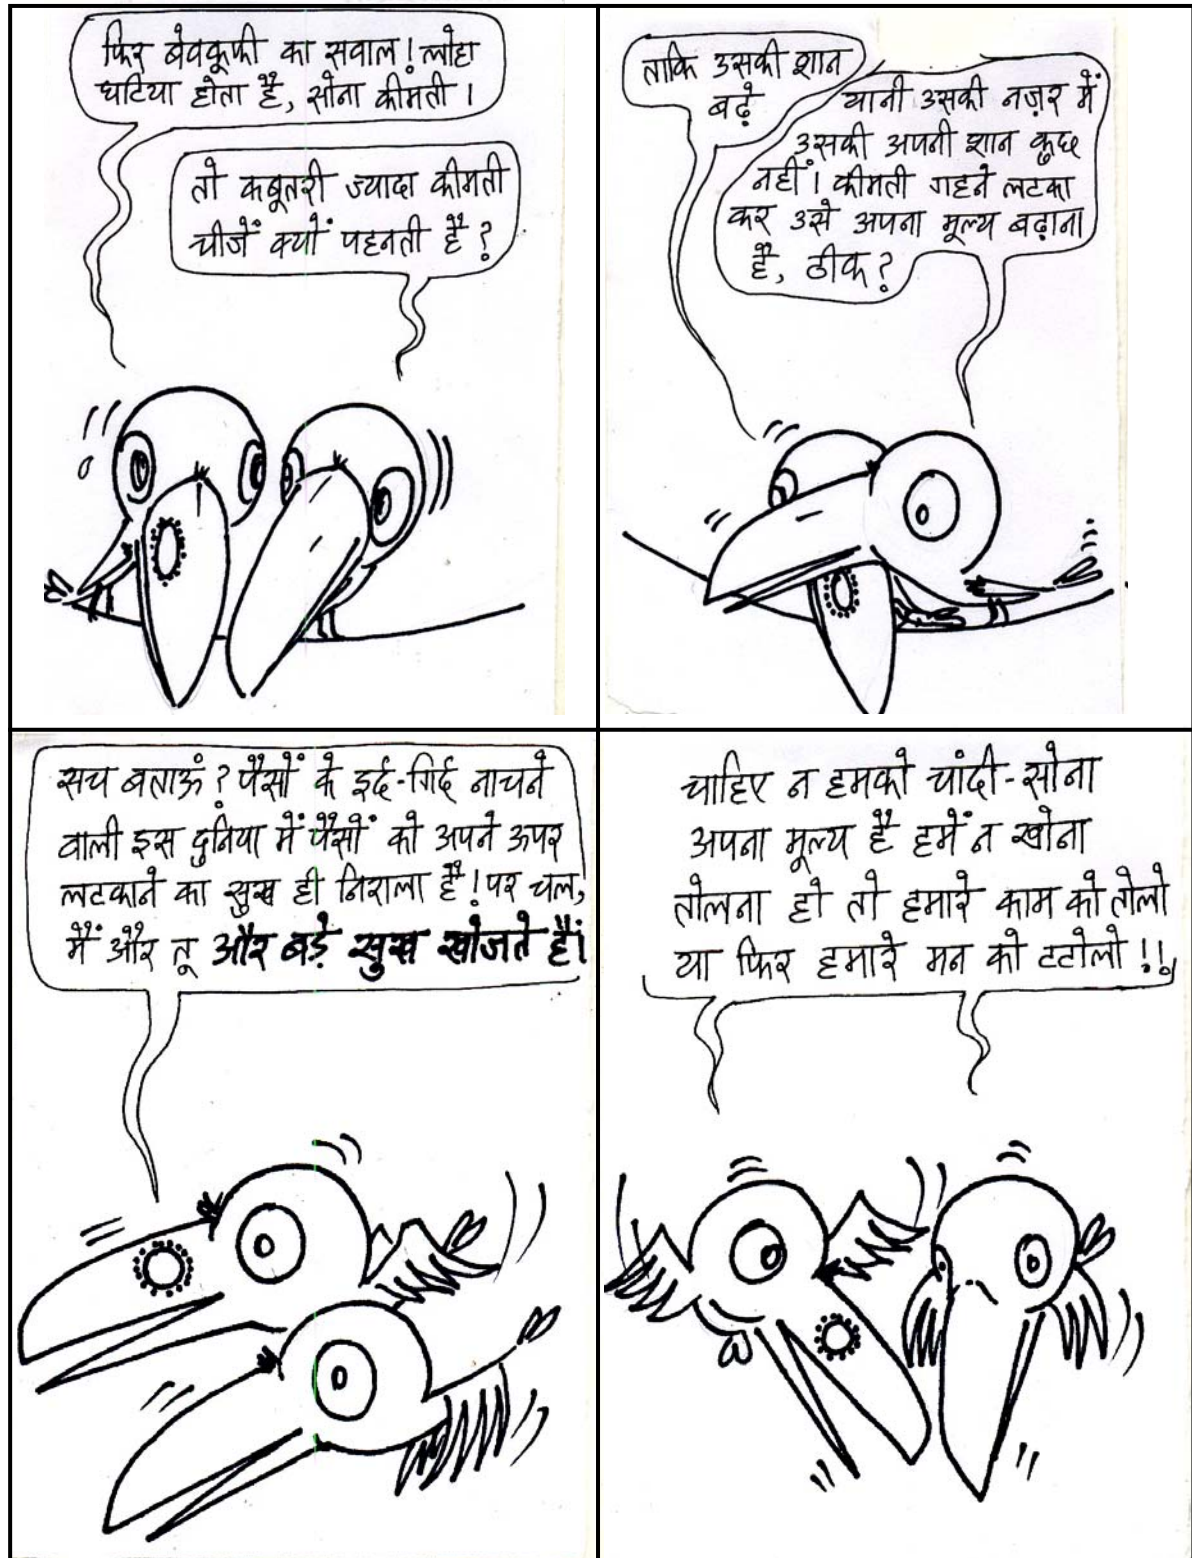 फिर बेवकूफी का सवाल! लोहा
घटिया होता है, सोना कीमती।
तो कबूतरी ज्यादा कीमती
चीजें क्यों पहनती है?
ताकि उसकी शान
बढ़े
यानी उसकी नज़र में
उसकी अपनी शान कुछ
नहीं। कीमती गहने लटका
कर उसे अपना मूल्य बढ़ाना
है, ठीक?
सच बताऊं? पैसों के इर्द-गिर्द नाचने
वाली इस दुनिया में पैसों को अपने ऊपर
लटकाने का सुख ही निराला है! पर चल,
मैं और तू और बड़े सुख खोजते हैं।
चाहिए न हमको चांदी-सोना
अपना मूल्य है हमें न खोना
तोलना हो तो हमारे काम को तोलो
या फिर हमारे मन को टटोलो!!